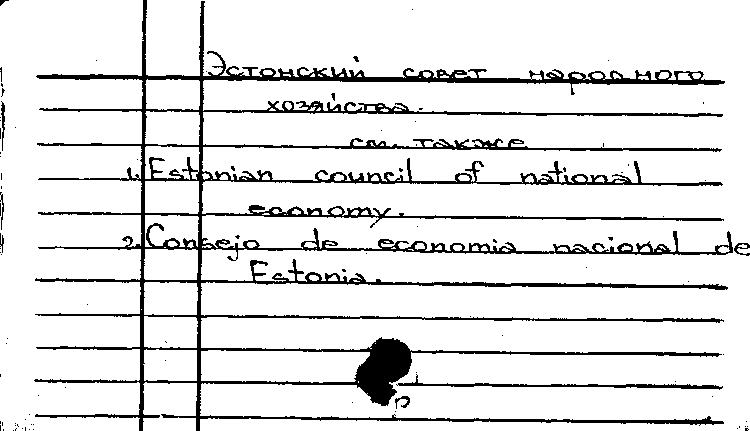 Эстонский совет народного
хозяйства.
см. также
1. Estonian council of national
economy.
2. Consejo de economia nacional de
Estonia.